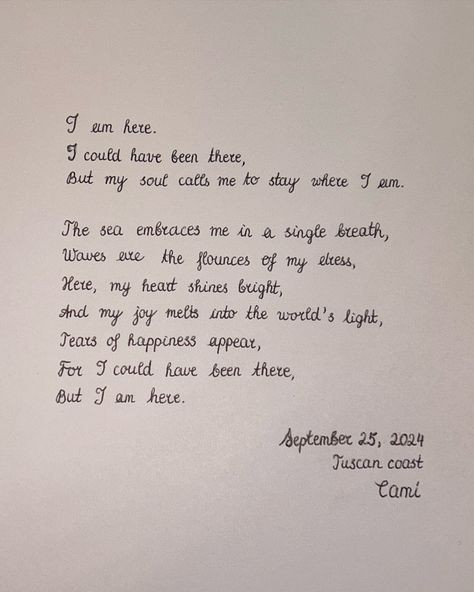 I am here.
I could have been there,
But my soul calls me to stay where I am.
The sea embraces me in a single breath,
Waves are the flounces of my dress,
Here, my heart shines bright,
And my joy melts into the world's light,
Tears of happiness appear,
For I could have been there,
But I am here.
September 25, 2024
Tuscan coast
Cami